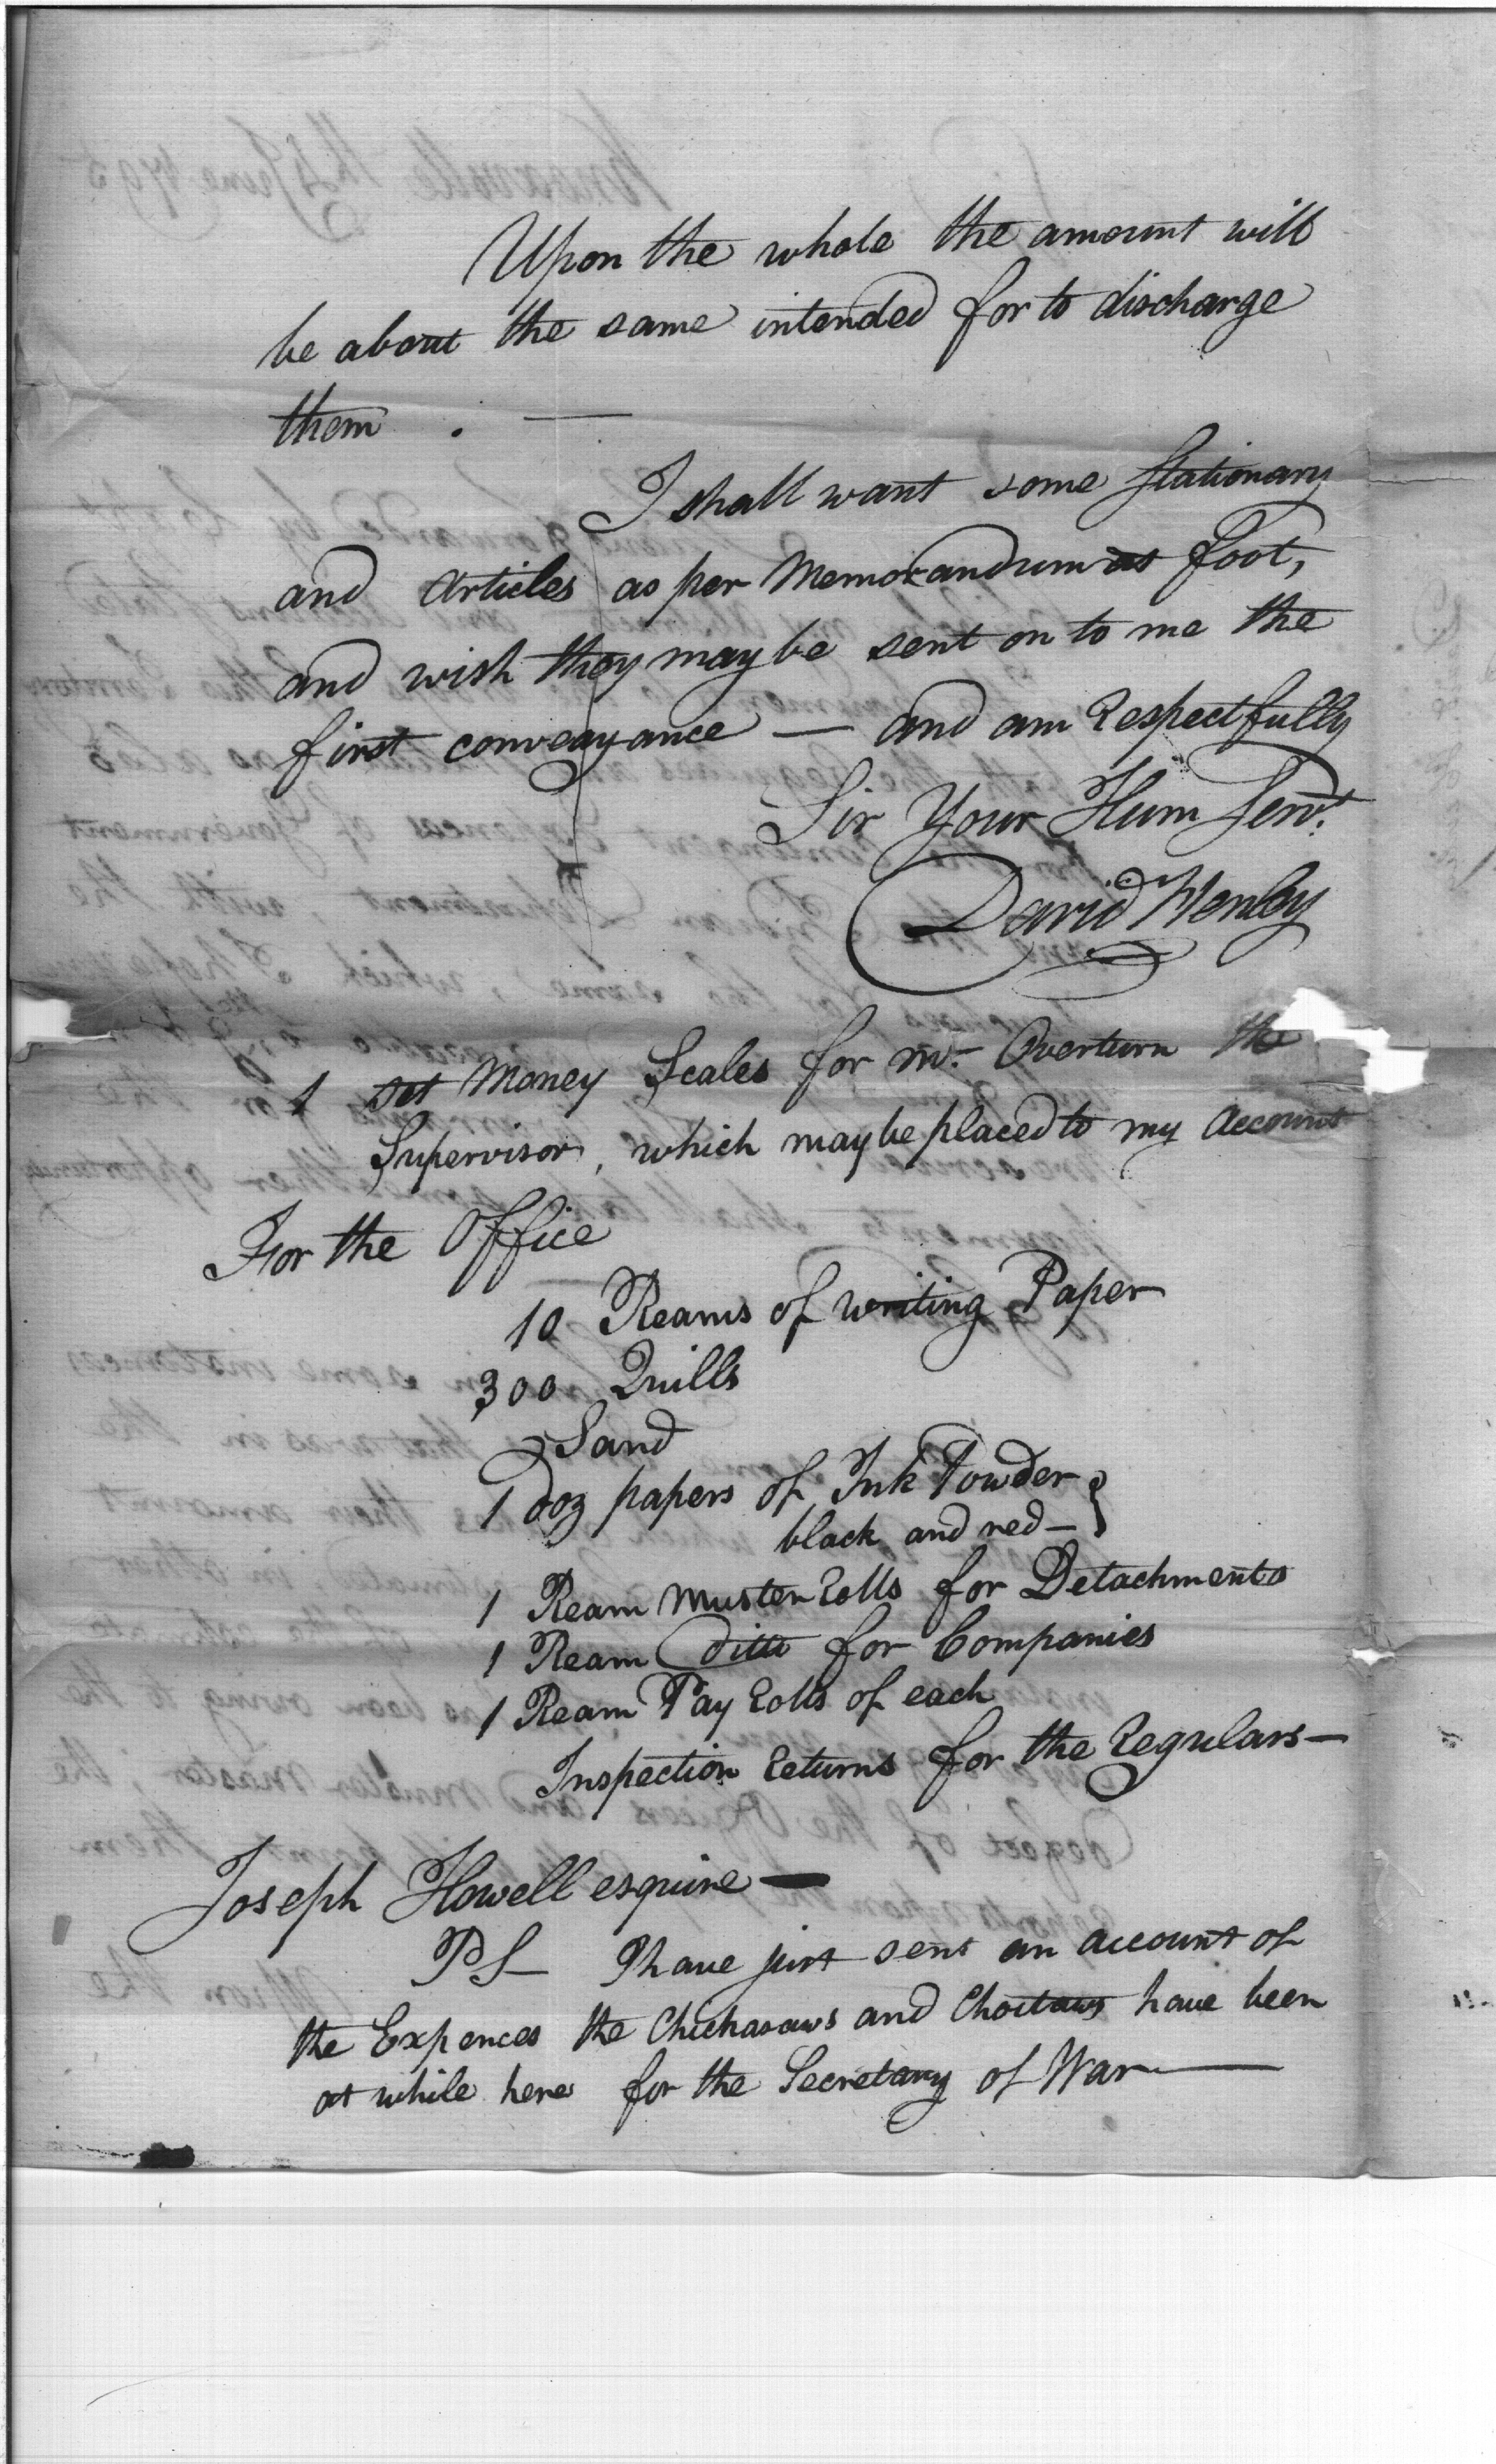 Upon the whole the amount will
be about the same intended for to discharge
them . —
I shall want some Stationary
and Articles as per Memorandum at foot,
and wish they may be sent on to me the
first conveyance — and am Respectfully
Sir Your Hum Servt.
David Henley
1 set Money Scales for Mr. Overturn the
Supervisor, which may be placed to my Account
For the Office
10 Reams of writing Paper
300 Quills
Sand
1 doz papers of Ink Powder }
black and red —
1 Ream Muster Rolls for Detachments
1 Ream ditto for Companies
1 Ream Pay Rolls of each
Inspection Returns for the Regulars —
Joseph Howell esquire —
PS — I have just sent an account of
the Expences the Chickasaws and Choctaws have been
at while here for the Secretary of War —